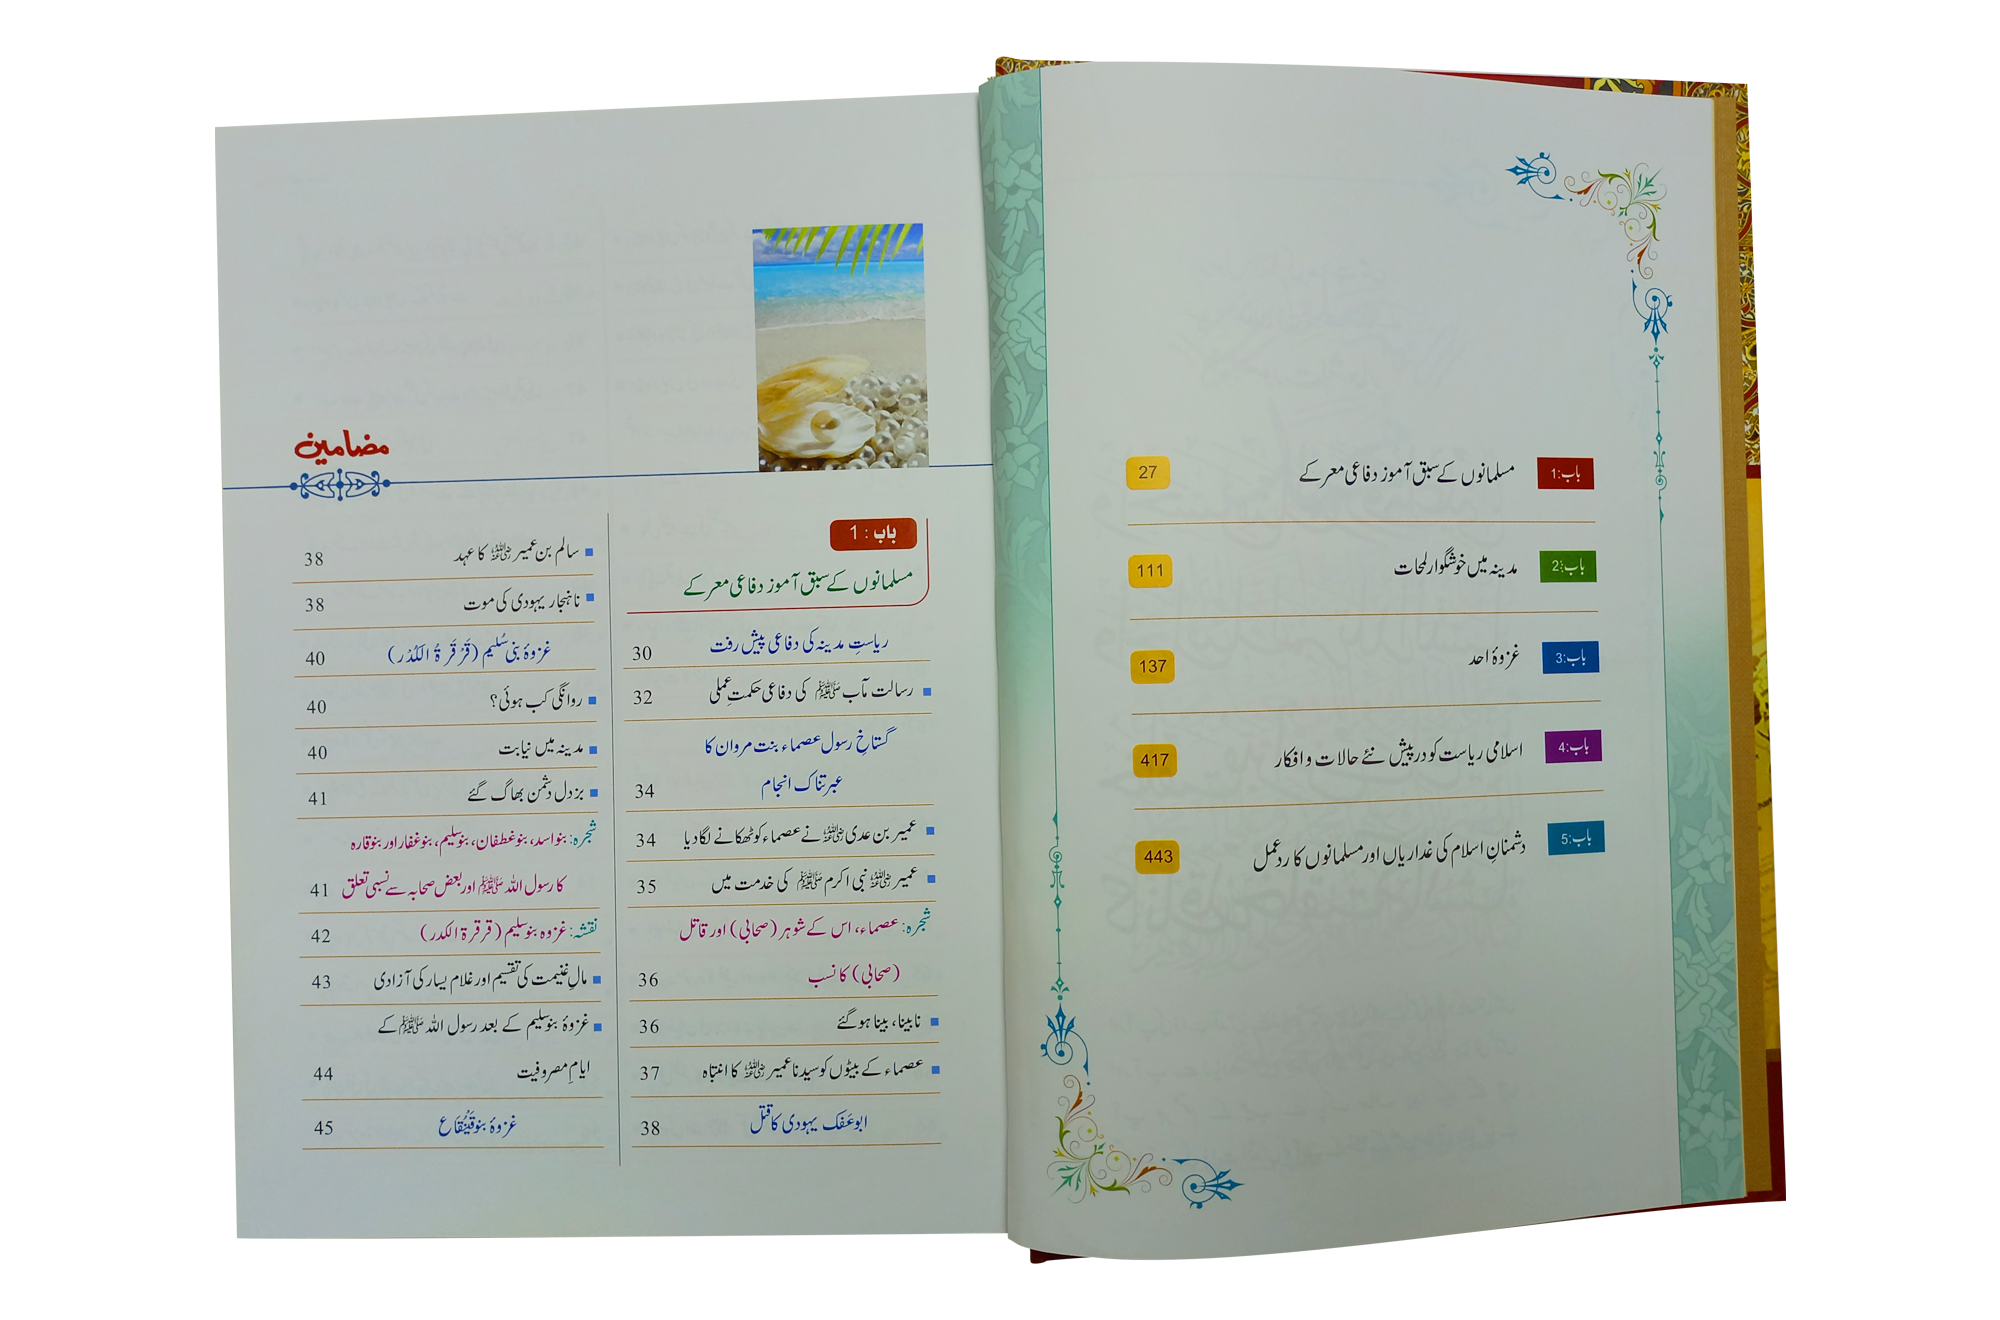 باب:1 مسلمانوں کے سبق آموز دفاعی معرکے 27
باب:2 مدینہ میں خوشگوار لمحات 111
باب:3 غزوۂ احد 137
باب:4 اسلامی ریاست کو درپیش نئے حالات و افکار 417
باب:5 دشمنانِ اسلام کی غداریاں اور مسلمانوں کا ردعمل 443
مضامین
باب : 1
مسلمانوں کے سبق آموز دفاعی معرکے
ریاستِ مدینہ کی دفاعی پیش رفت 30
رسالت مآب ﷺ کی دفاعی حکمتِ عملی 32
گستاخِ رسول عصماء بنت مروان کا
عبرتناک انجام 34
عمیر بن عدی رضی اللہ عنہ نے عصماء کو ٹھکانے لگا دیا 34
عمیر رضی اللہ عنہ نبی اکرم ﷺ کی خدمت میں 35
شجرہ: عصماء، اس کے شوہر (صحابی) اور قاتل
(صحابی) کا نسب 36
نابینا، بینا ہو گئے 36
عصماء کے بیٹوں کو سیدنا عمیر رضی اللہ عنہ کا انتباہ 37
ابو عَفَک یہودی کا قتل 38
سالم بن عمیر رضی اللہ عنہ کا عہد 38
ناہنجار یہودی کی موت 38
غزوۂ بنی سُلیم (قَرْقَرَۃُ الْکُدْر) 40
روانگی کب ہوئی؟ 40
مدینہ میں نیابت 40
بزدل دشمن بھاگ گئے 41
شجرہ: بنو اسد، بنو غطفان، بنو سلیم، بنو غفار اور بنو قارہ
کا رسول اللہ ﷺ اور بعض صحابہ سے نسبی تعلق 41
نقشہ: غزوہ بنو سلیم (قرقرۃ الکدر) 42
مالِ غنیمت کی تقسیم اور غلام یسار کی آزادی 43
غزوۂ بنو سلیم کے بعد رسول اللہ ﷺ کے
ایامِ مصروفیت 44
غزوۂ بنو قَیْنُقَاع 45